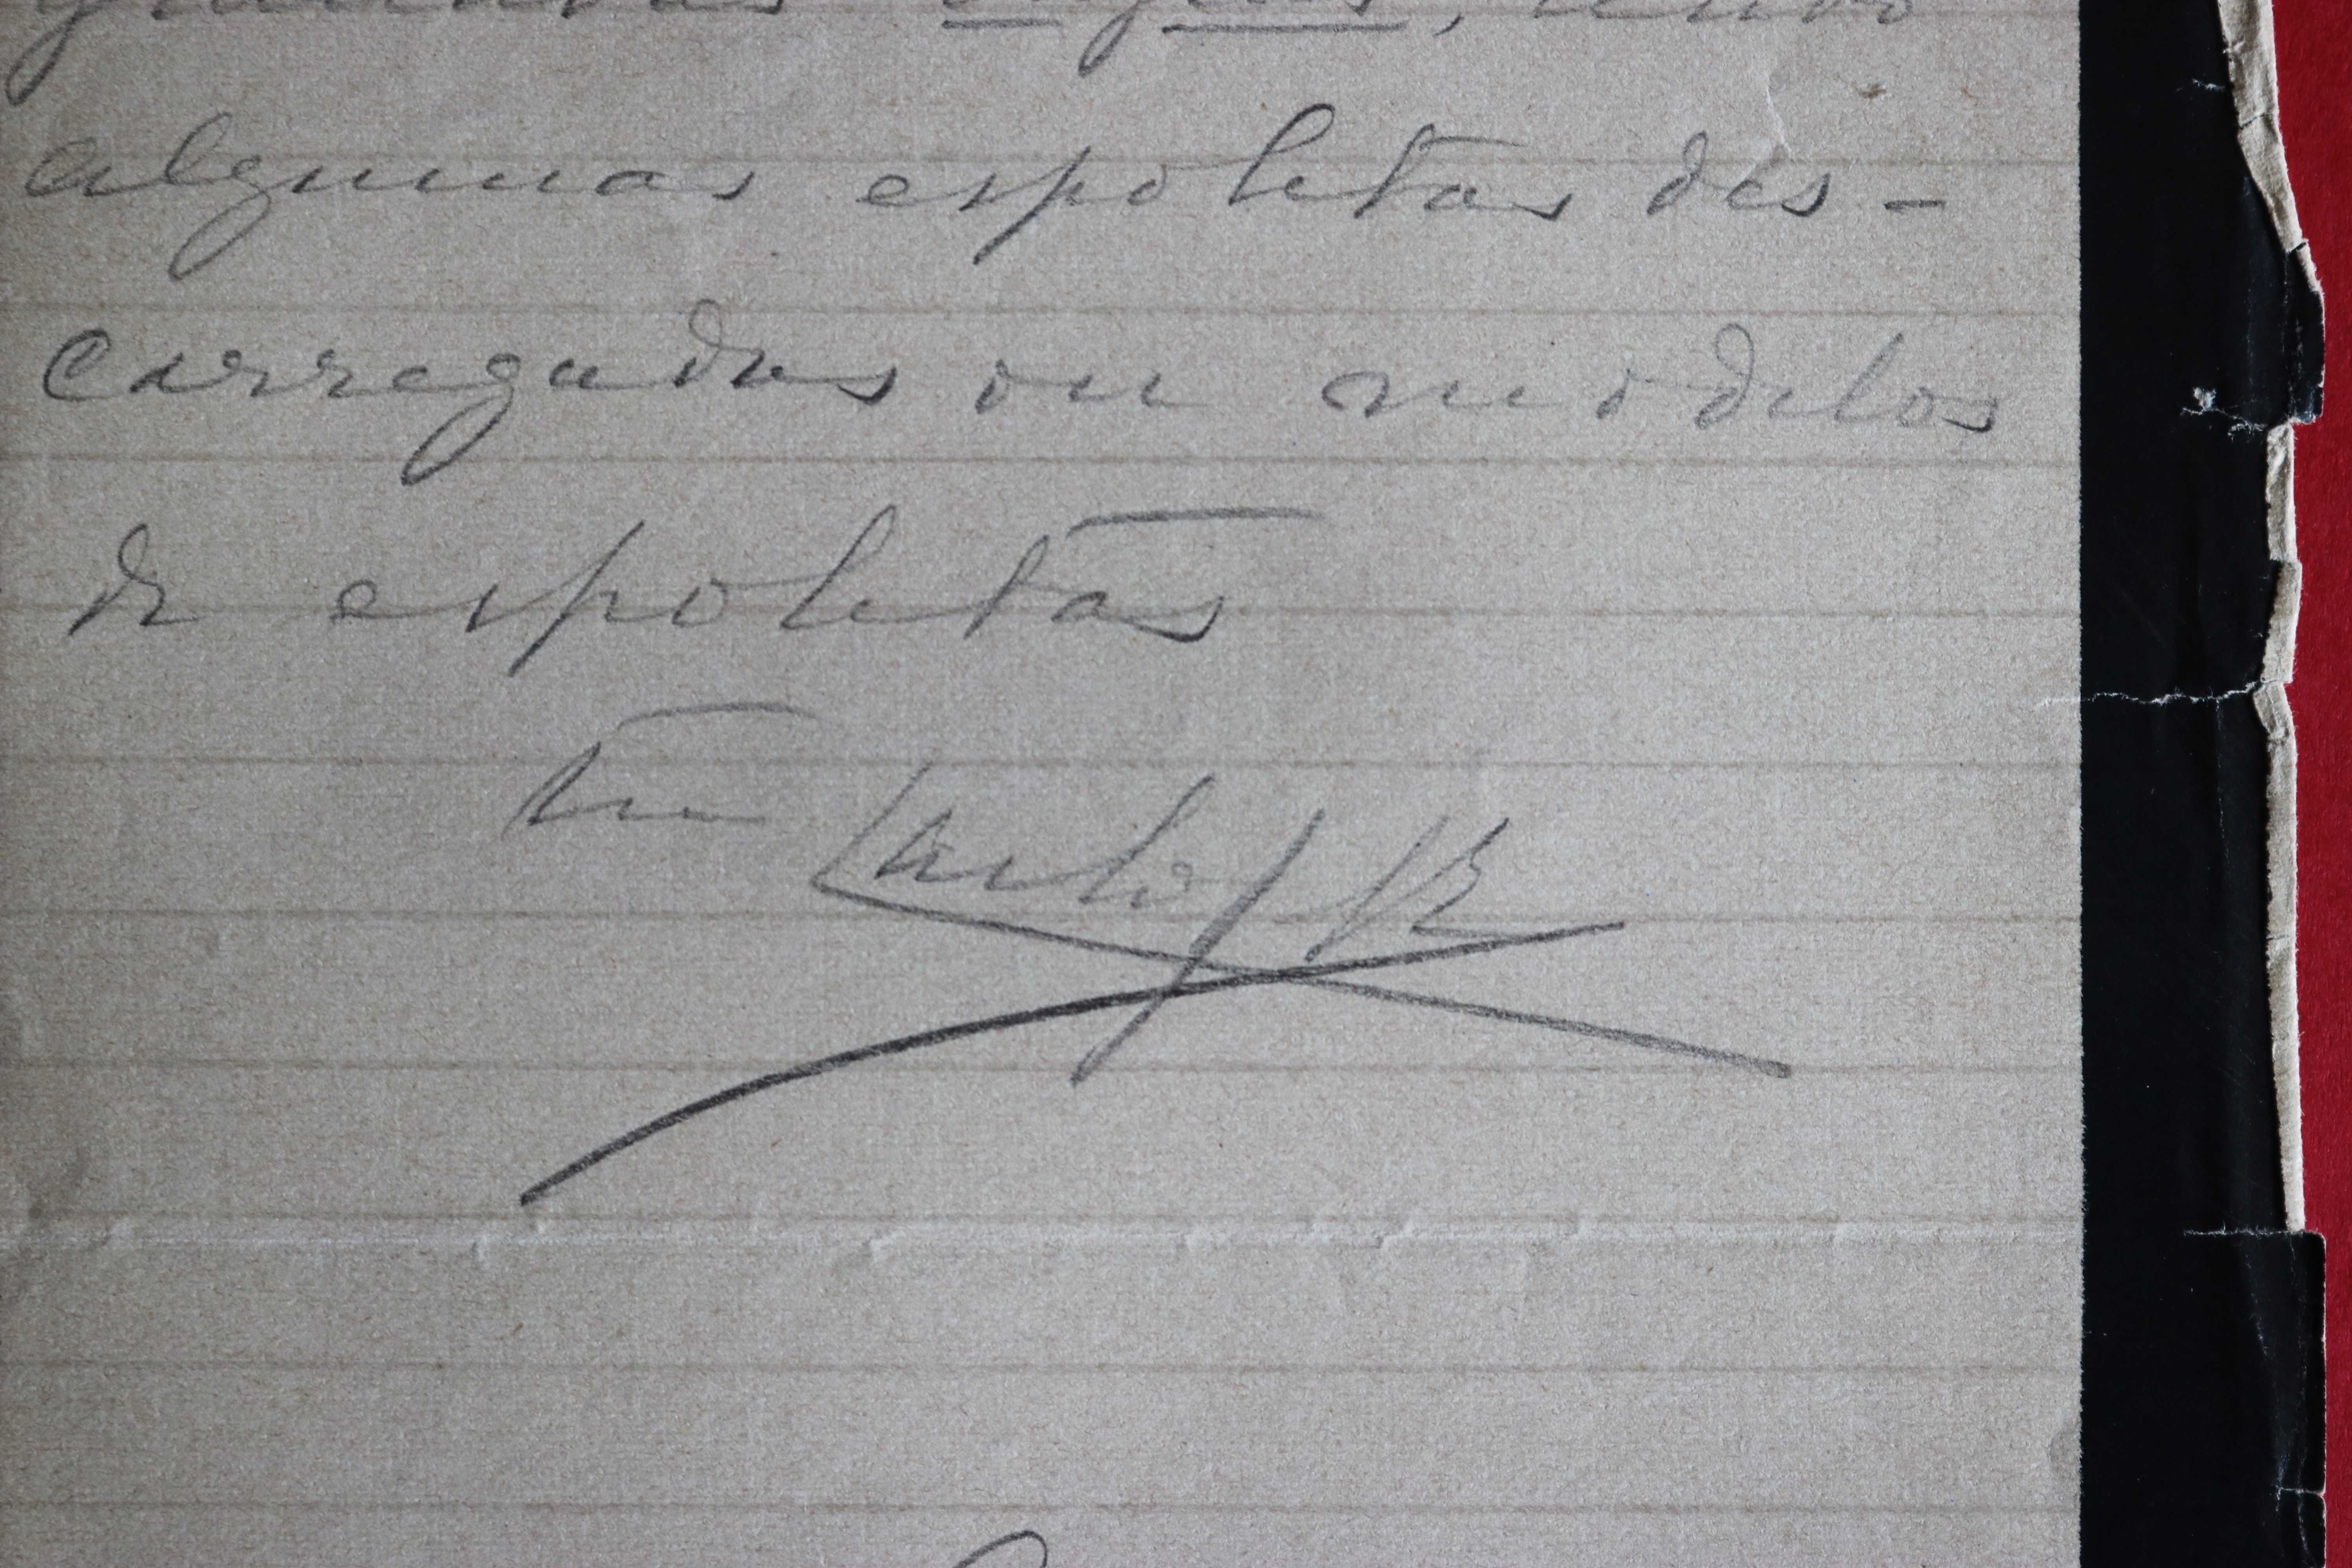 algumas espoletas des-
carregadas ou modelos
de espoletas
Teu Carlos